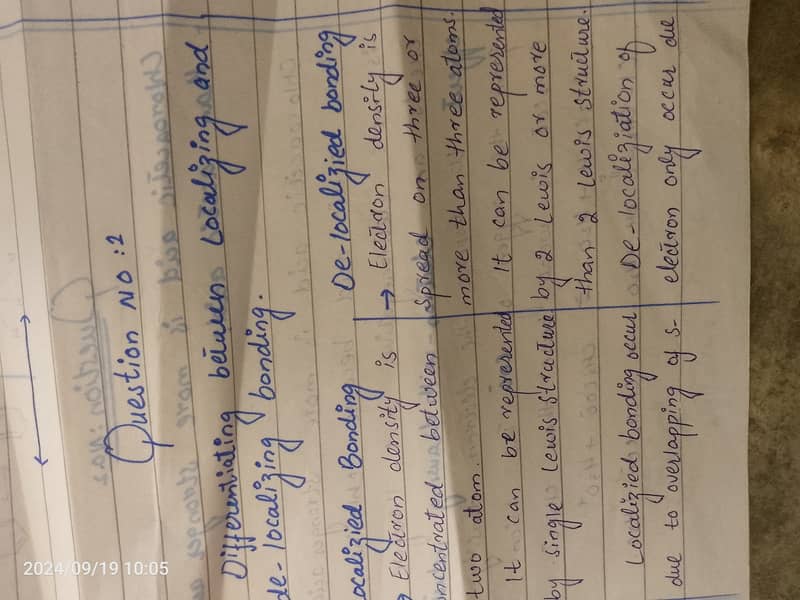 Question NO : 2
Differentiating between Localizing and
de-localizing bonding.
Localizied Bonding De-localizied bonding
Electron density is → Electron density is
concentrated between spread on three or
two atom. more than three atoms.
It can be represented It can be represented
by single Lewis structure by 2 Lewis or more
than 2 Lewis structure.
Localizied bonding occur De-localiziation of
due to overlapping of s- electron only occur due
2024/09/19 10:05